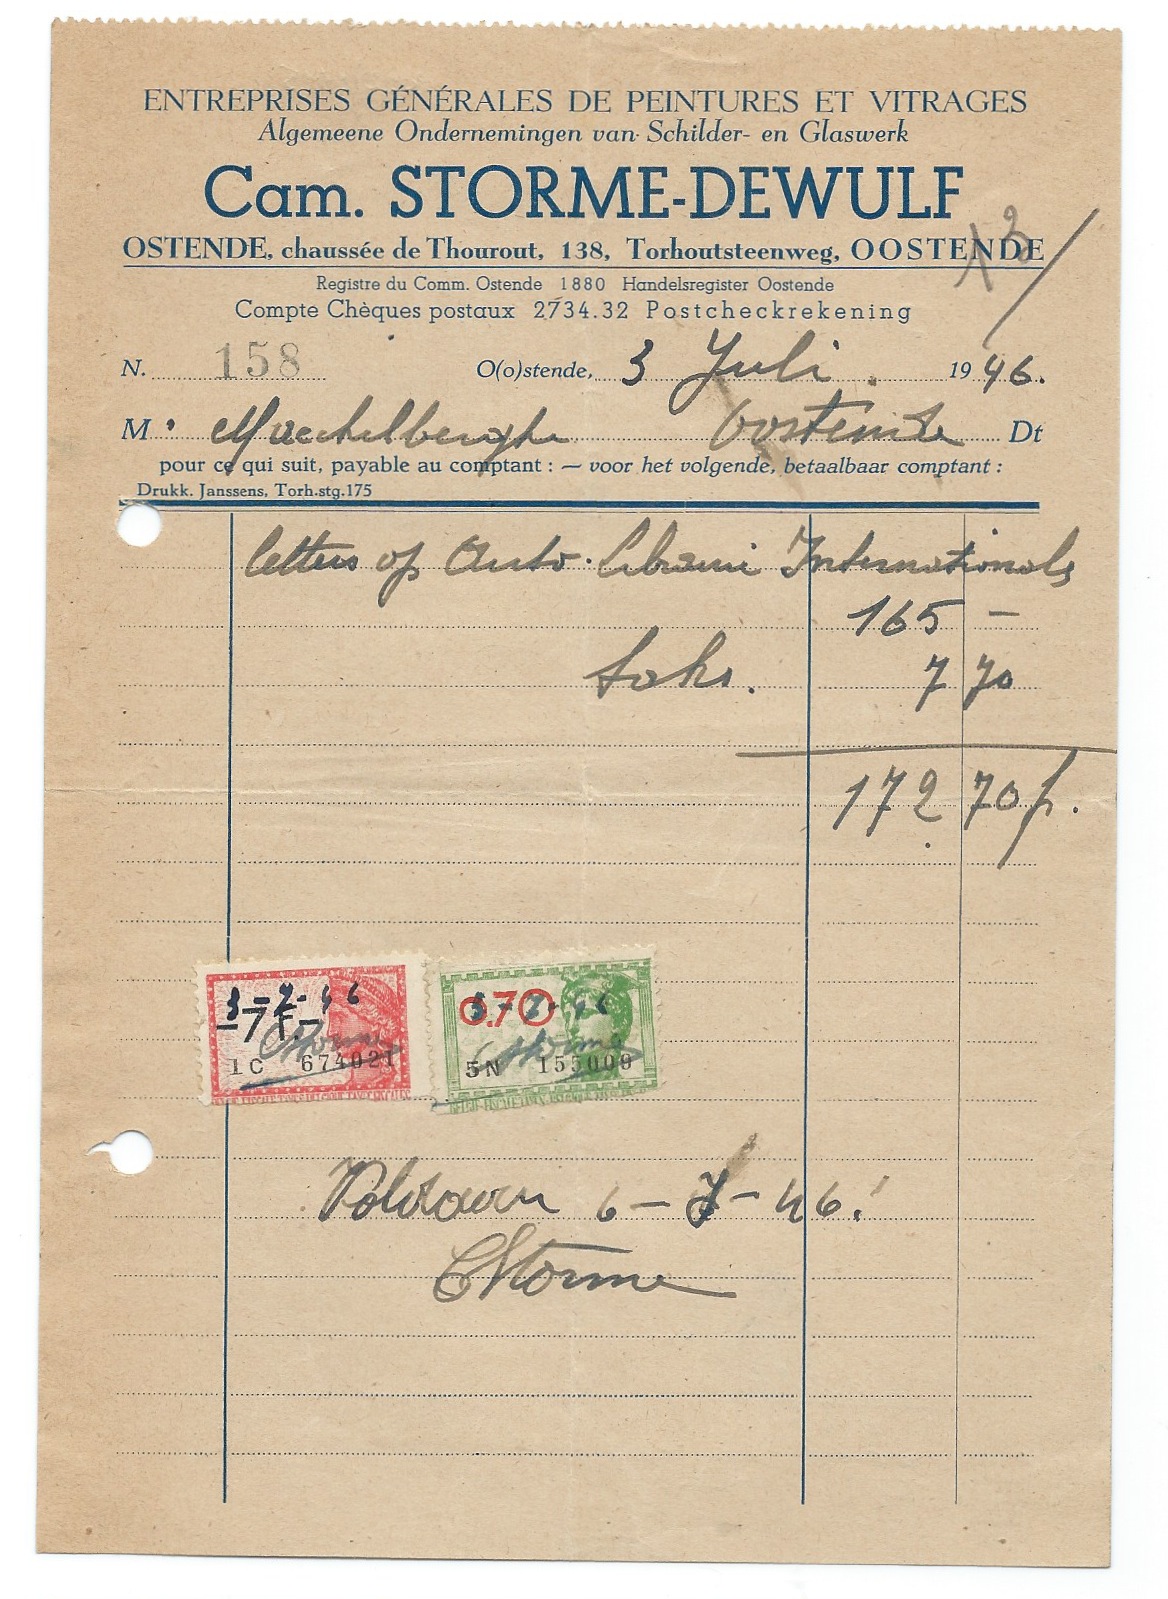 ENTREPRISES GÉNÉRALES DE PEINTURES ET VITRAGES
Algemeene Ondernemingen van Schilder- en Glaswerk
Cam. STORME-DEWULF
13/
OSTENDE, chaussée de Thourout, 138, Torhoutsteenweg, OOSTENDE
Registre du Comm. Ostende 1880 Handelsregister Oostende
Compte Chèques postaux 2734.32 Postcheckrekening
N. 158 O(o)stende, 3 Juli 1946.
M. Maechelberghe Oostende Dt
pour ce qui suit, payable au comptant : — voor het volgende, betaalbaar comptant :
Drukk. Janssens, Torh.stg.175
letters op Auto. Internationale
165 —
taks. 7 70
172 70 f.
3-7-46 3-7-46
-7F- 0.70
CStorme CStorme
1C 674021 5N 155009
Voldaan 6-7-46.
CStorme